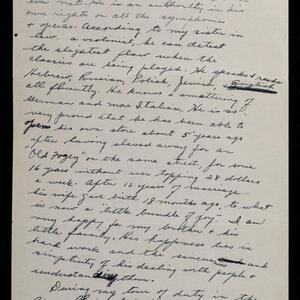 ever met. He is an authority in his
own rights on all the symphonies
& operas. According to my sister in
law, a violonist, he can detect
the slightest flaw when the
classics are being played. He speaks & reads
Hebrew, Russian, Polish, Jewish, English
all fluently. He knows a smattering of
German and more Italian. He is so
very proud that he has been able to
open his own store about 5 years ago
after having slaved away for an
"Old Fogey" on the same street, for some
16 years without ever topping 28 dollars
a week. After 12 years of marriage
his wife gave birth 18 months ago, to what
is now a "little bundle of joy". I am
very happy for my brother & his
little family. His happiness lies in
hard work and the sincere and
simplicity of his dealing with people &
understanding them.
During my tour of duty in the